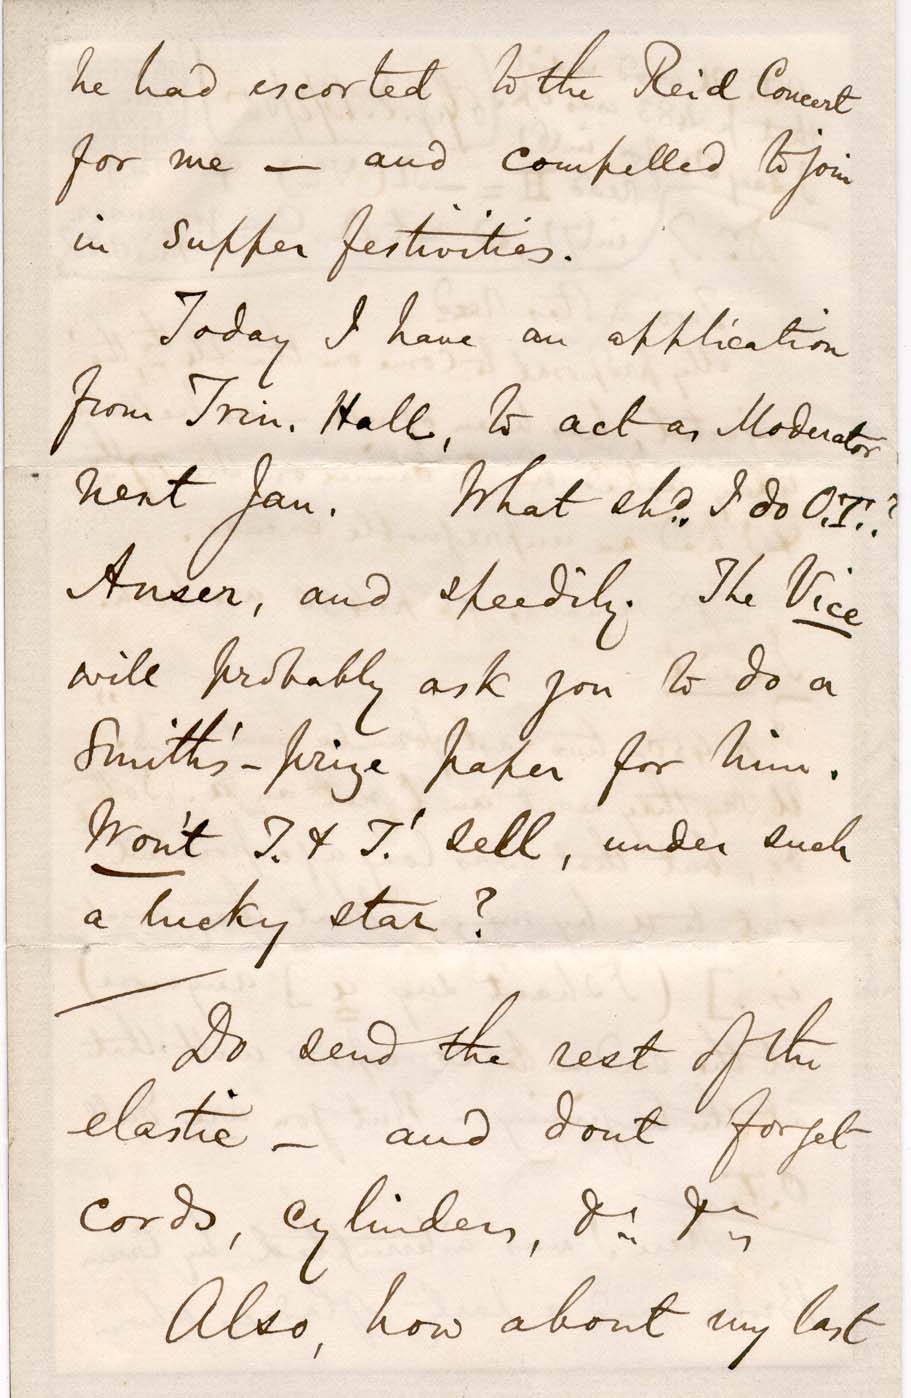 he had escorted to the Reid Concert
for me — and compelled to join
in supper festivities.
Today I have an application
from Trin. Hall, to act as Moderator
next Jan. What shd. I do O.T.?
Anser, and speedily. The Vice
will probably ask you to do a
Smith's-prize paper for him.
Won't T. & T.' sell, under such
a lucky star?
Do send the rest of the
elastic — and dont forget
cords, cylinders, &c. &c.
Also, how about my last